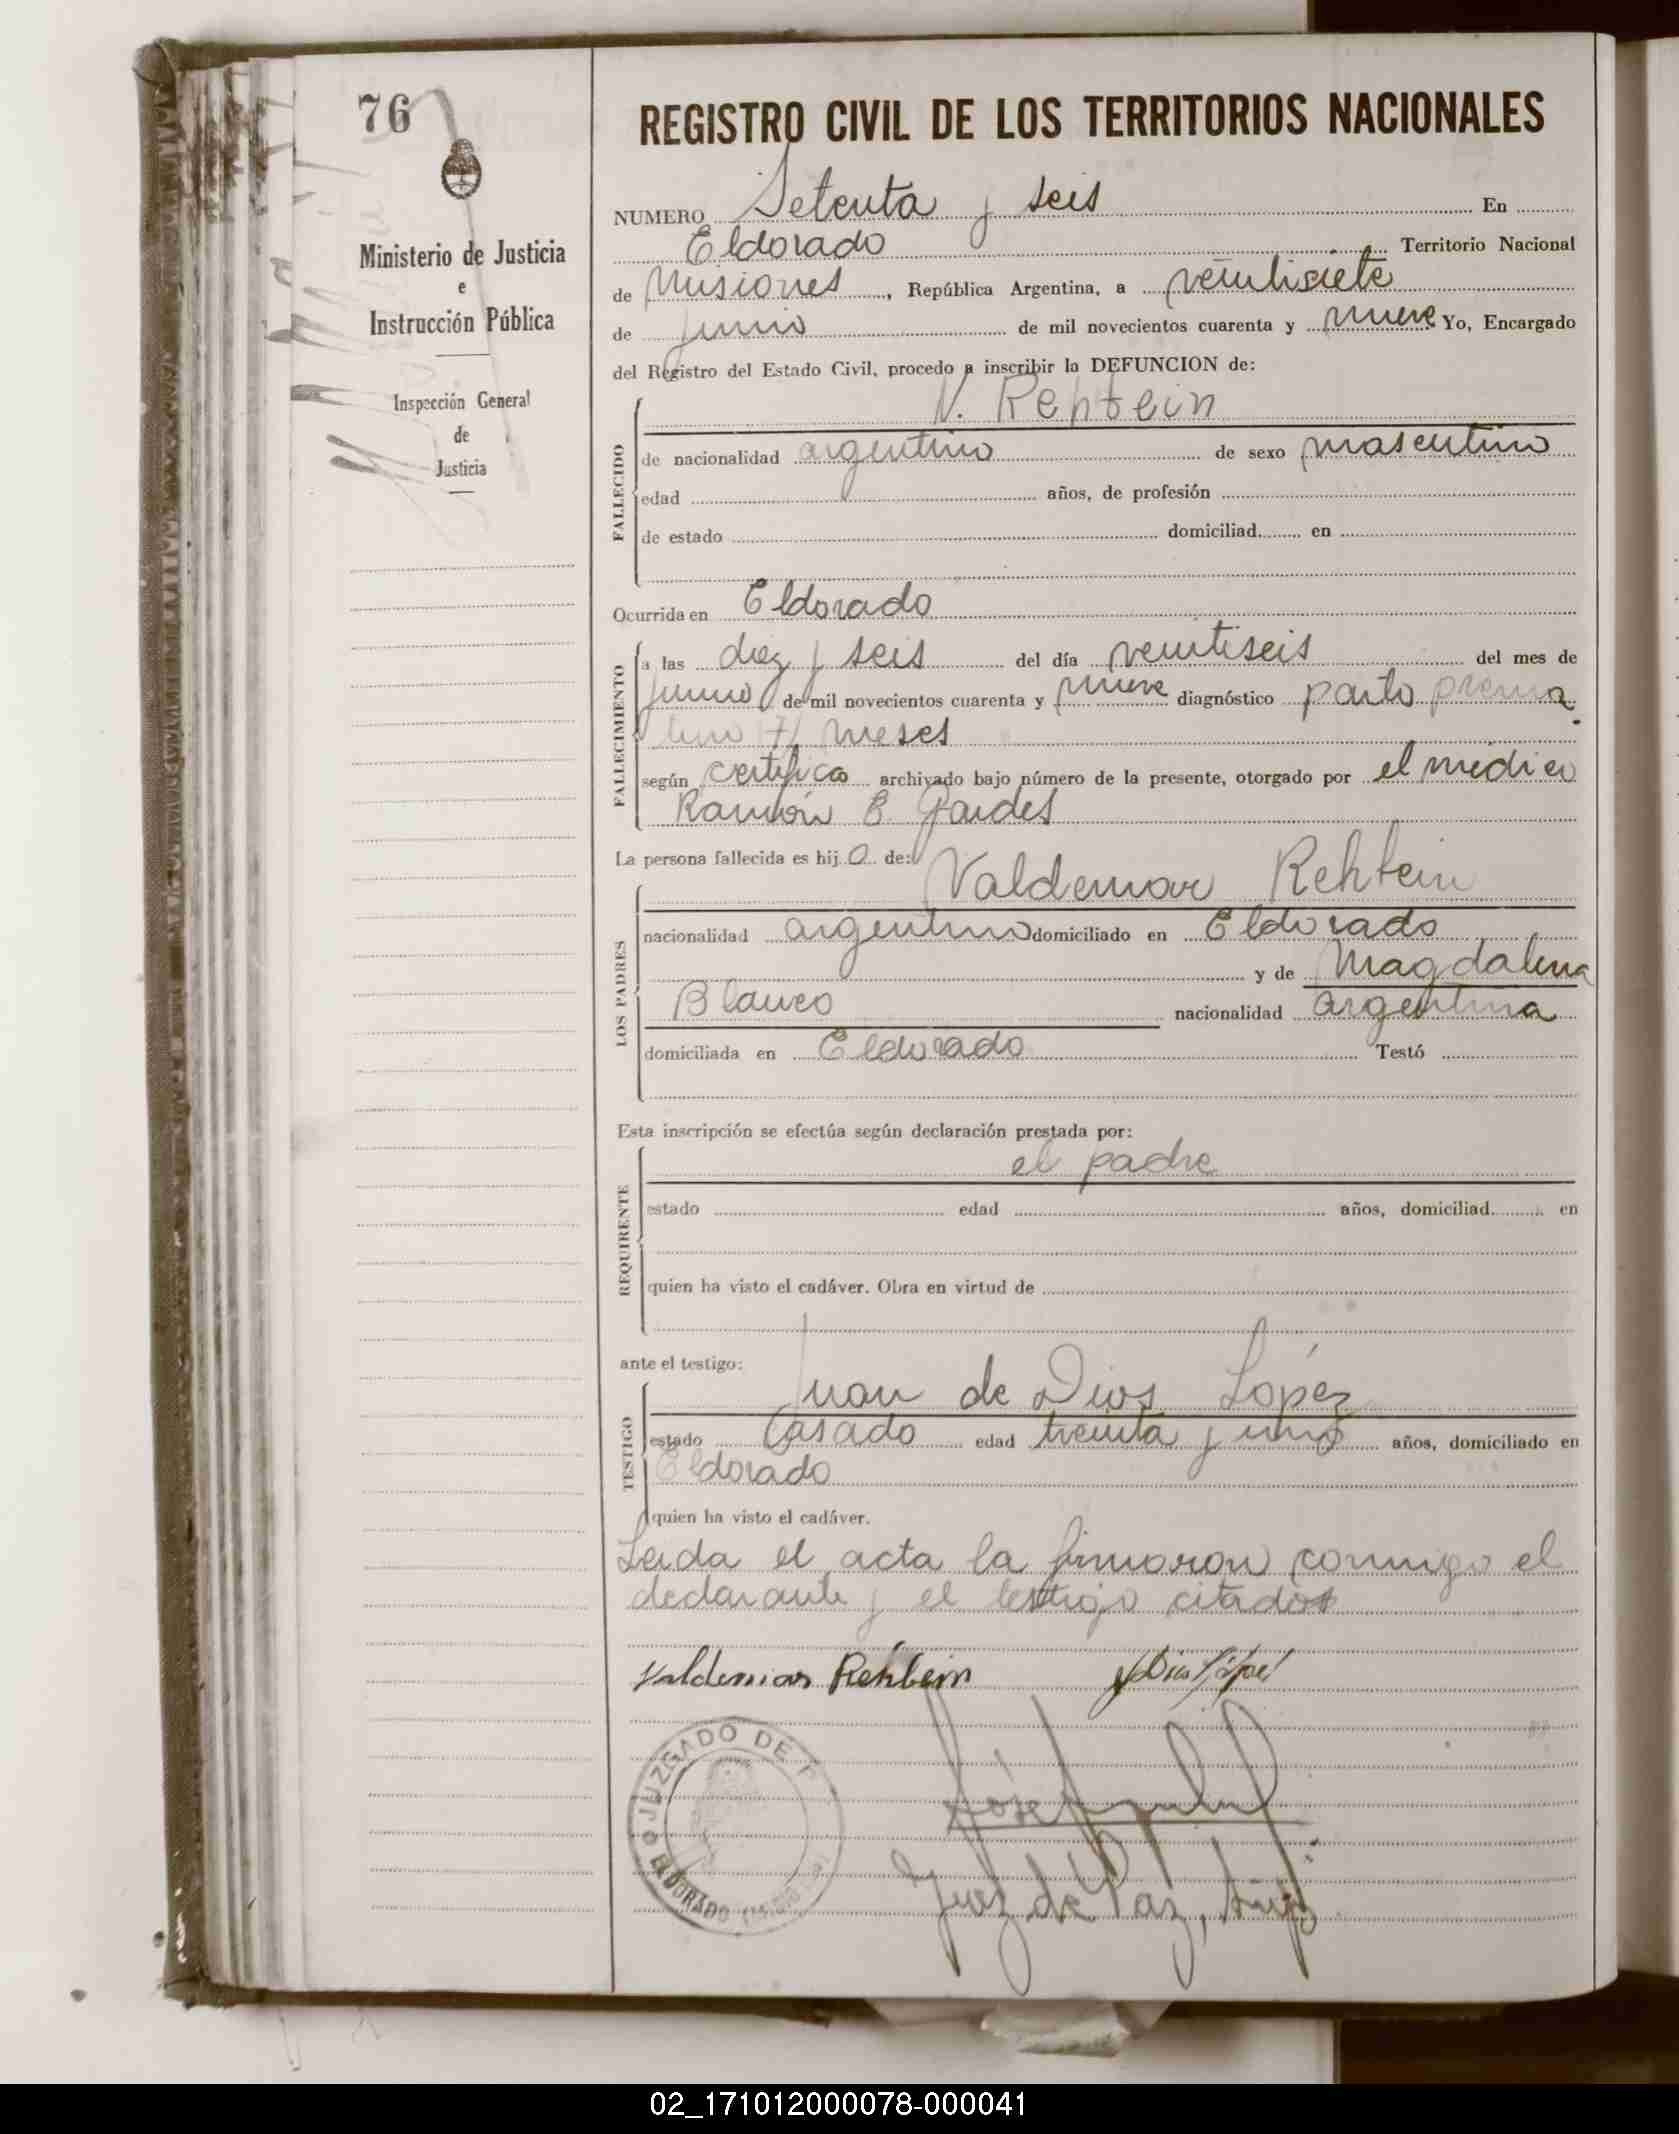 76
Ministerio de Justicia
e
Instrucción Pública
Inspección General
de
Justicia
REGISTRO CIVIL DE LOS TERRITORIOS NACIONALES
NUMERO Setenta y seis En
Eldorado Territorio Nacional
de Misiones, República Argentina, a veintisiete
de junio de mil novecientos cuarenta y nueve Yo, Encargado
del Registro del Estado Civil, procedo a inscribir la DEFUNCION de:
N. Rehbein
FALLECIDO
de nacionalidad argentino de sexo masculino
edad años, de profesión
de estado domiciliad en
Ocurrida en Eldorado
FALLECIMIENTO
a las diez y seis del día veintiseis del mes de
junio de mil novecientos cuarenta y nueve diagnóstico parto prema
turo 7 meses
según certifico archivado bajo número de la presente, otorgado por el médico
Ramón E.
La persona fallecida es hijo de:
Valdemar Rehbein
LOS PADRES
nacionalidad argentino domiciliado en Eldorado
y de Magdalena
Blanco nacionalidad argentina
domiciliada en Eldorado Testó
Esta inscripción se efectúa según declaración prestada por:
el padre
REQUIRENTE
estado edad años, domiciliad en
quien ha visto el cadáver. Obra en virtud de
ante el testigo:
Juan de Dios López
TESTIGO
estado Casado edad treinta y uno años, domiciliado en
Eldorado
quien ha visto el cadáver.
Leida el acta la firmaron conmigo el
declarante y el testigo citados
Valdemar Rehbein
JUZGADO DE P
ELDORADO
Juez de Paz,
02_171012000078-000041